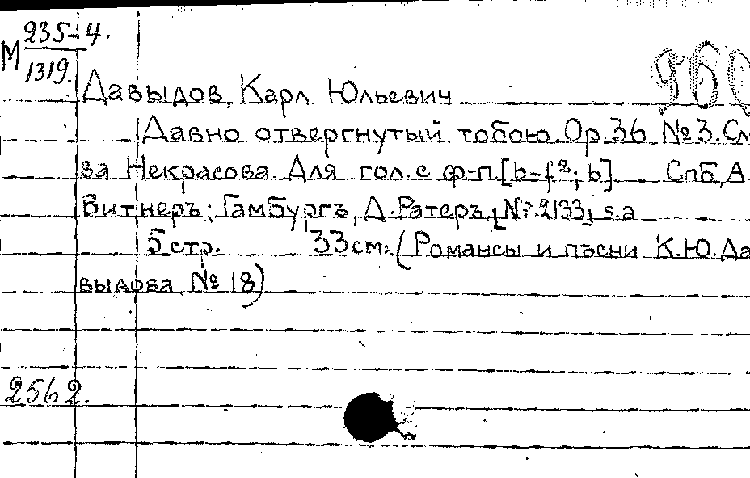 М 235-4.
1319.
960
Давыдов, Карл Юльевич
Давно отвергнутый тобою. Op. 36 № 3. Сл
ва Некрасова. Для гол. с ф-п. [b-f²; b]. Спб, А.
Битнеръ; Гамбургъ, Д. Ратеръ, [N? 2133] s.a
5 стр. 33 см. (Романсы и пѣсни К.Ю. Да
выдова № 18)
2562.